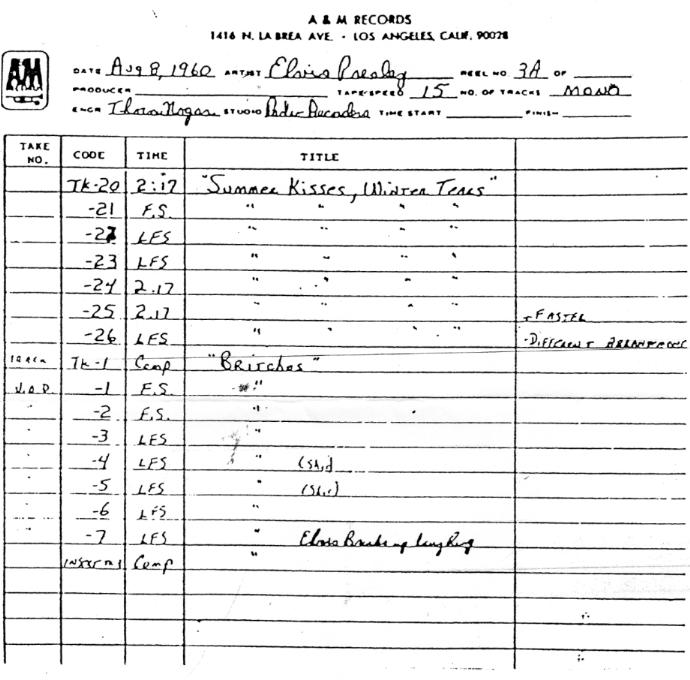 A & M RECORDS
1416 N. LA BREA AVE. · LOS ANGELES, CALIF. 90028
A&M
DATE Aug 8, 1960 ARTIST Elvis Presley REEL NO 3A OF
PRODUCER TAPE SPEED 15 NO. OF TRACKS MONO
ENGR Thorne Nogar STUDIO Radio Recorders TIME START FINISH
TAKE NO. CODE TIME TITLE
TK-20 2:17 "Summer Kisses, Winter Tears"
-21 F.S. " " " "
-22 LFS " " " "
-23 LFS " " " "
-24 2.17 " " " "
-25 2.17 " " " " - FASTER
-26 LFS " " " " - DIFFERENT ARRANGEMENT
TRACK TK-1 Comp "Britches"
V.O.D. -1 F.S. "
" -2 F.S. "
" -3 LFS "
" -4 LFS "
" -5 LFS "
" -6 LFS "
" -7 LFS " Elvis Breaks up laughing
INSERT 1 Comp "